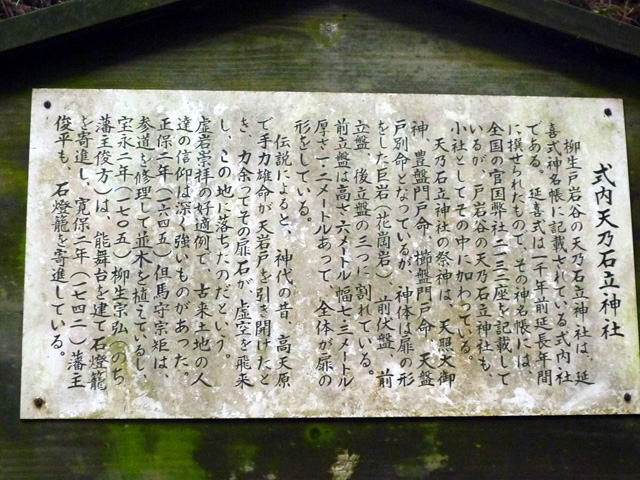 式内天乃石立神社
柳生戸岩谷の天乃石立神社は、延
喜式神名帳に記載されている式内社
である。延喜式は一千年前延長年間
に撰せられたもので、その神名帳には、
全国の官国弊社二八六一座を記載して
いるが、戸岩谷の天乃石立神社も、
小社としてその中に加わっている。
天乃石立神社の祭神は、天照大御
神 豊盤門戸命 櫛盤門戸命 天盤
戸別命となっているが、神体は扉の形
をした巨岩(花崗岩) 前伏盤 前
立盤 後立盤の三つに割れている。
前立盤は高さ六メートル 幅七・三メートル
厚さ一・二メートルあって、全体が扉の
形をしている。
伝説によると、神代の昔 高天原
で手力雄命が天岩戸を引き開けたと
き、力余ってその扉石が、虚空を飛来
し、この地に落ちたのだという。
虚岩崇祥の好適例で、古来土地の人
達の信仰は深く強いものがあった。
正保二年(一六四五)但馬守宗矩は、
参道を修理して並木を植えているし、
宝永二年(一七〇五)柳生宗弘(のち
藩主俊方)は、能舞台を建て石燈籠
を寄進し、寛保二年(一七四二)藩主
俊平も、石燈籠を寄進している。